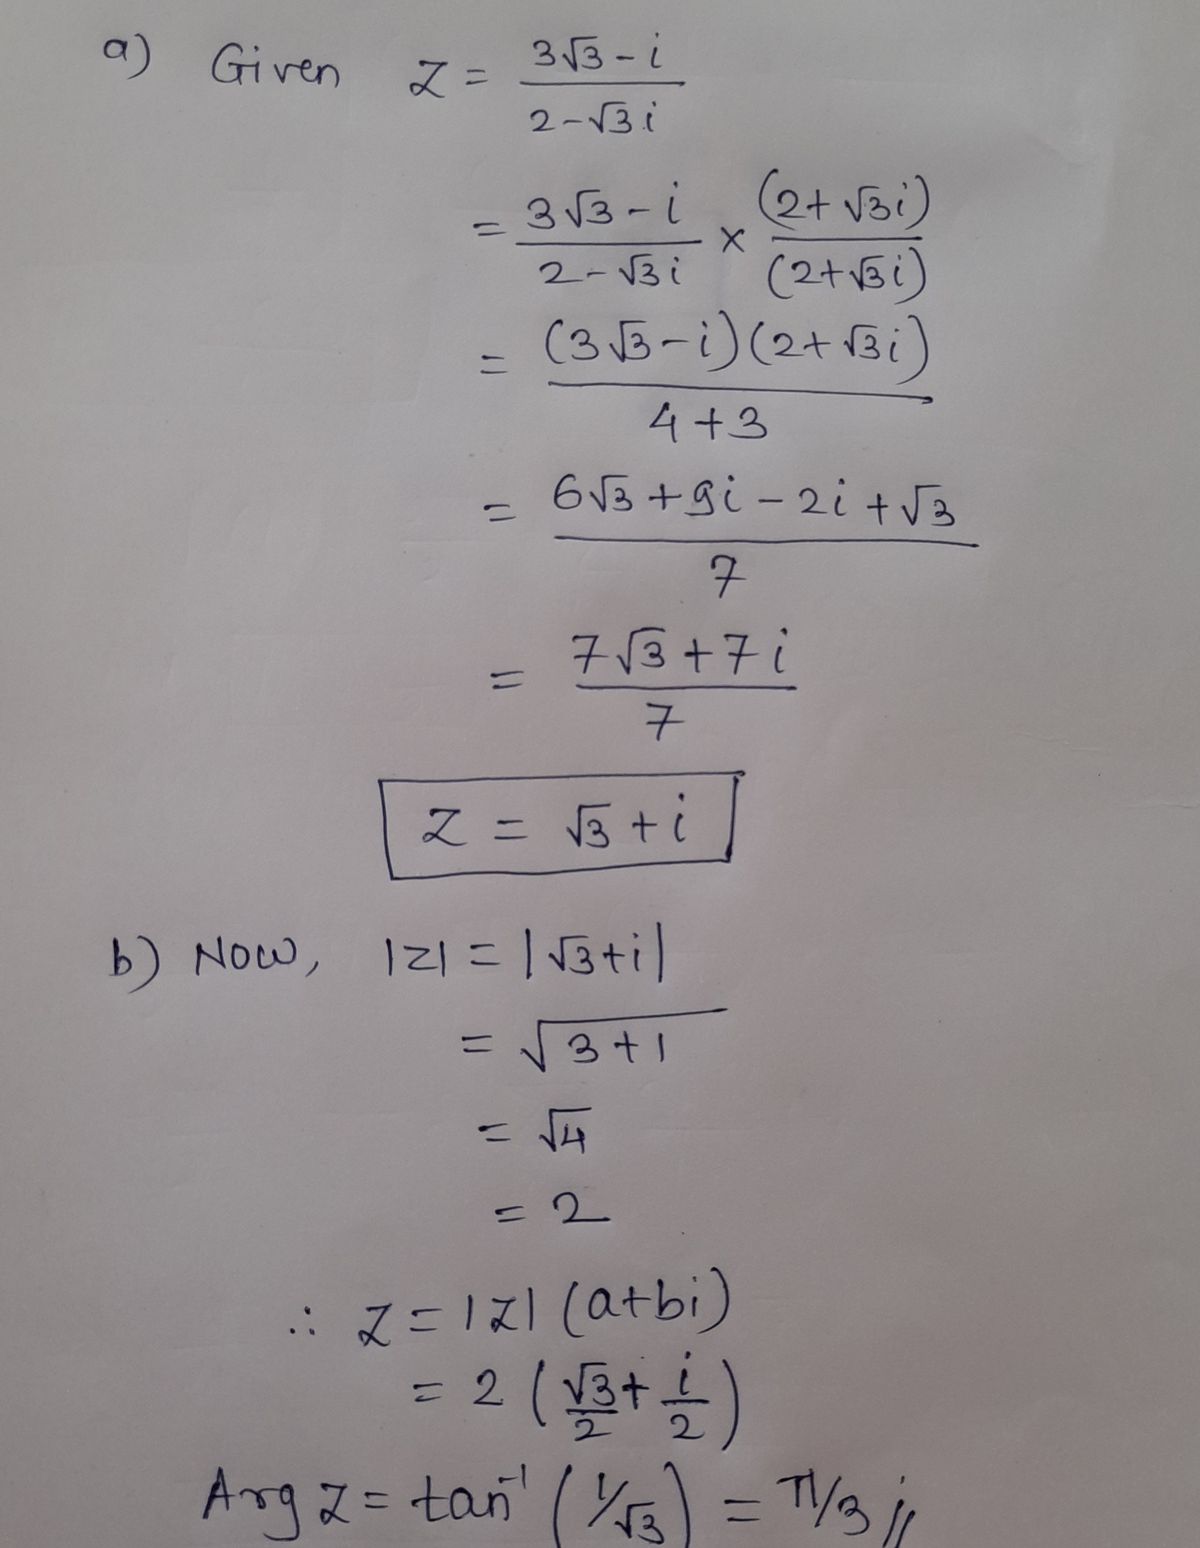 a) Given z = (3√3 - i)/(2 - √3i)
= (3√3 - i)/(2 - √3i) × (2 + √3i)/(2 + √3i)
= (3√3 - i)(2 + √3i)/(4 + 3)
= (6√3 + 9i - 2i + √3)/7
= (7√3 + 7i)/7
z = √3 + i
b) Now, |z| = |√3 + i|
= √(3 + 1)
= √4
= 2
∴ z = |z| (a + bi)
= 2 (√3/2 + i/2)
Arg z = tan⁻¹ (1/√3) = π/3 i//